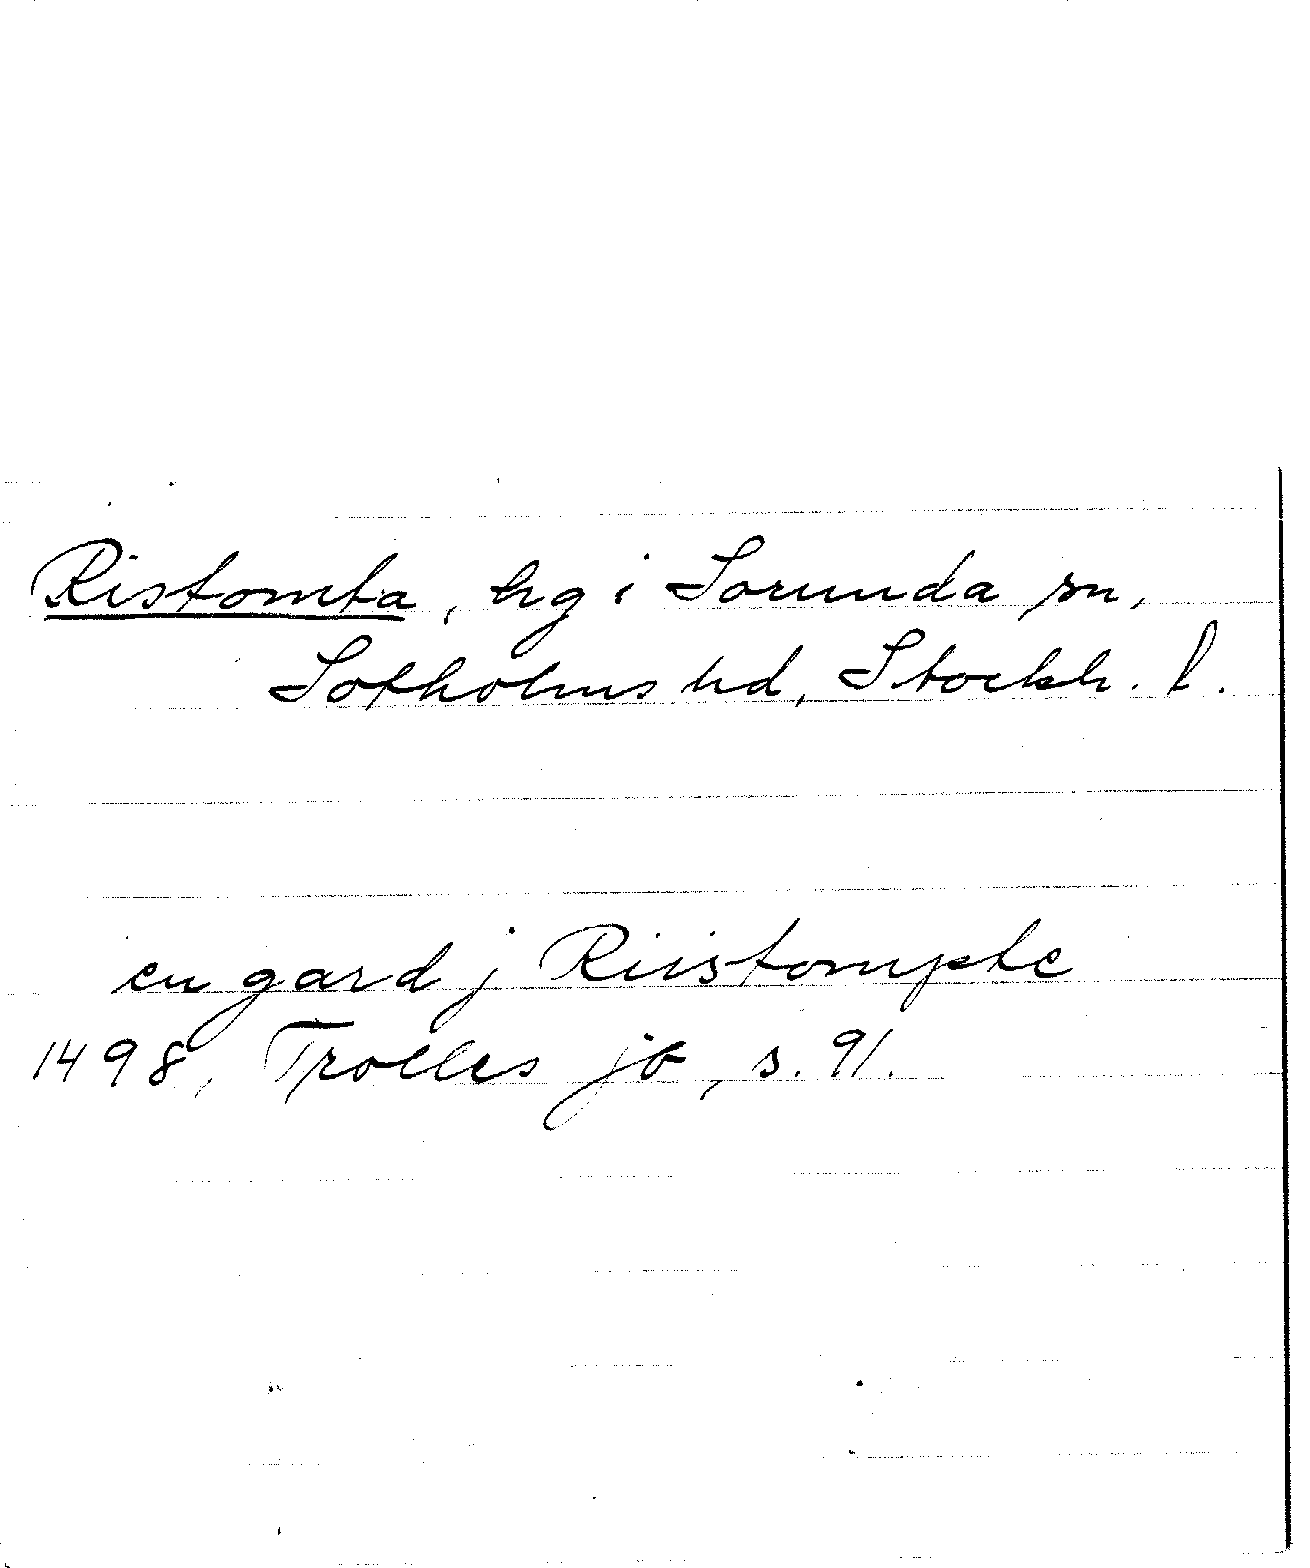 Ristomta, hg i Sorunda sn,
Sotholms hd, Stockh. l.
en gard j Riistompte
1498, Trolles jb, s. 91.